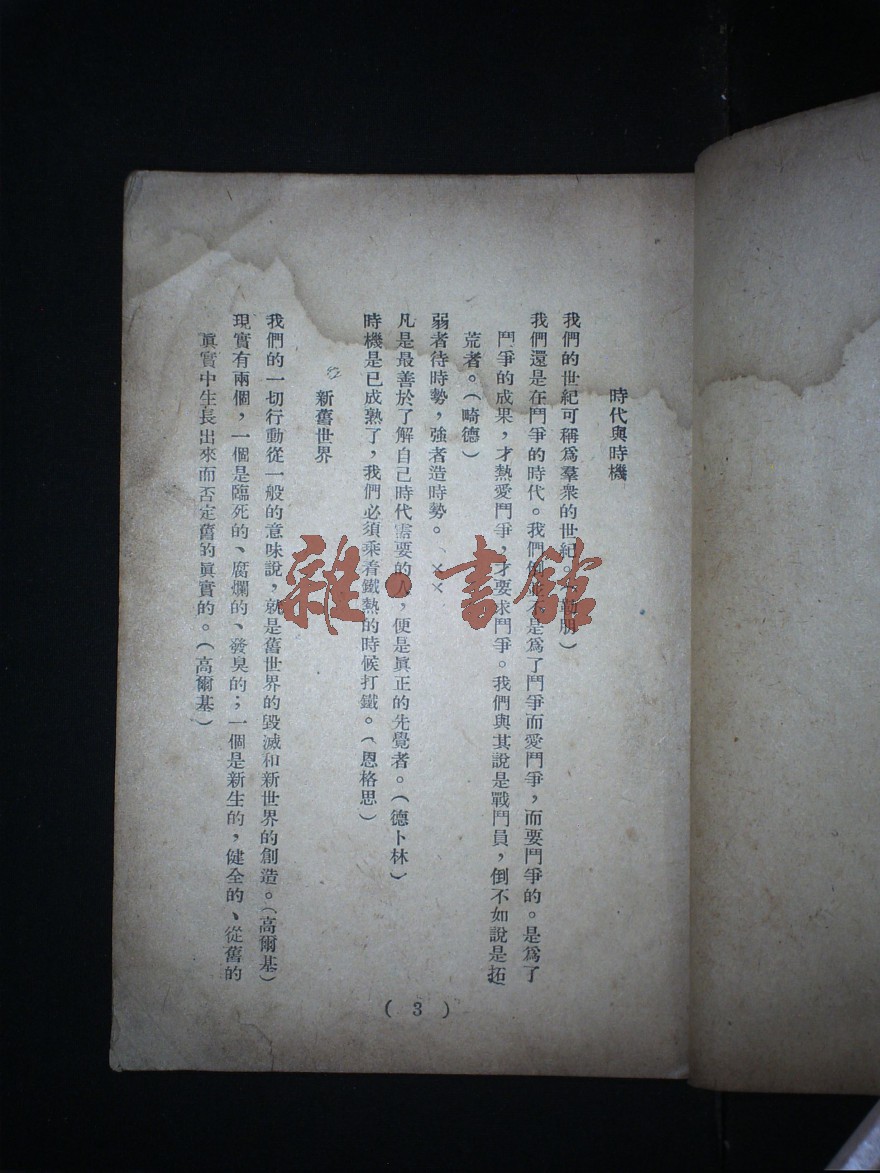 時代與時機
我們的世紀可稱爲羣衆的世紀。(勒朋)
我們還是在鬥爭的時代。我們倒並不是爲了鬥爭而愛鬥爭，而要鬥爭的。是爲了
鬥爭的成果，才熱愛鬥爭，才要求鬥爭。我們與其說是戰鬥員，倒不如說是拓
荒者。(畸德)
弱者待時勢，強者造時勢。(××
凡是最善於了解自己時代需要的人，便是眞正的先覺者。(德卜林)
時機是已成熟了，我們必須乘着鐵熱的時候打鐵。(恩格思)
新舊世界
我們的一切行動從一般的意味說，就是舊世界的毀滅和新世界的創造。(高爾基)
現實有兩個，一個是臨死的、腐爛的、發臭的；一個是新生的，健全的、從舊的
眞實中生長出來而否定舊的眞實的。(高爾基)
(3)
雜·書館